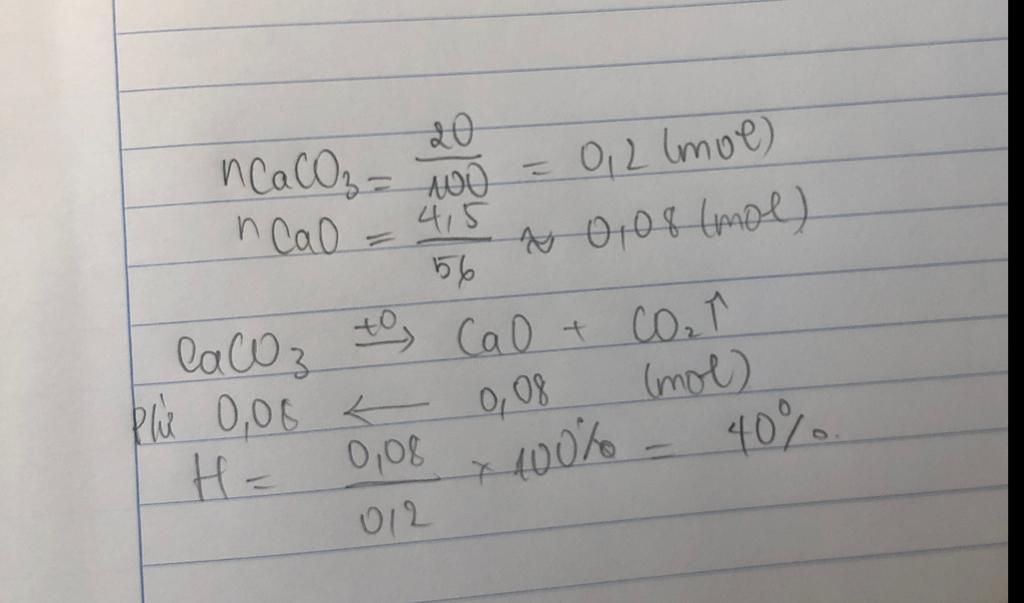 nCaCO₃ = 20/100 = 0,2 (mol)
nCaO = 4,5/56 ≈ 0,08 (mol)
CaCO₃ t⁰→ CaO + CO₂↑
0,08 ← 0,08 (mol)
H = 0,08/0,2 × 100% = 40%.